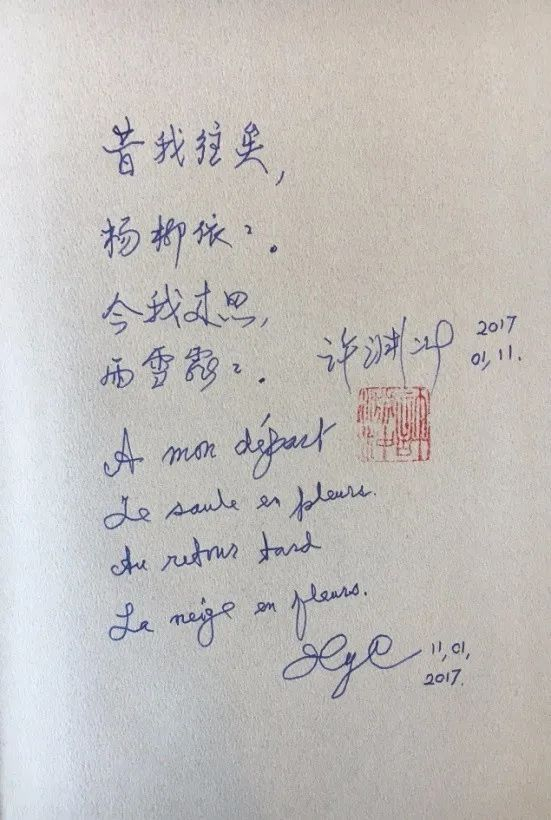 昔我往矣,
杨柳依〻。
今我来思,
雨雪霏〻。
许渊冲
2017
01,11.
A mon départ
Le saule en pleurs.
Au retour tard
La neige en fleurs.
XyC
11,01,
2017.